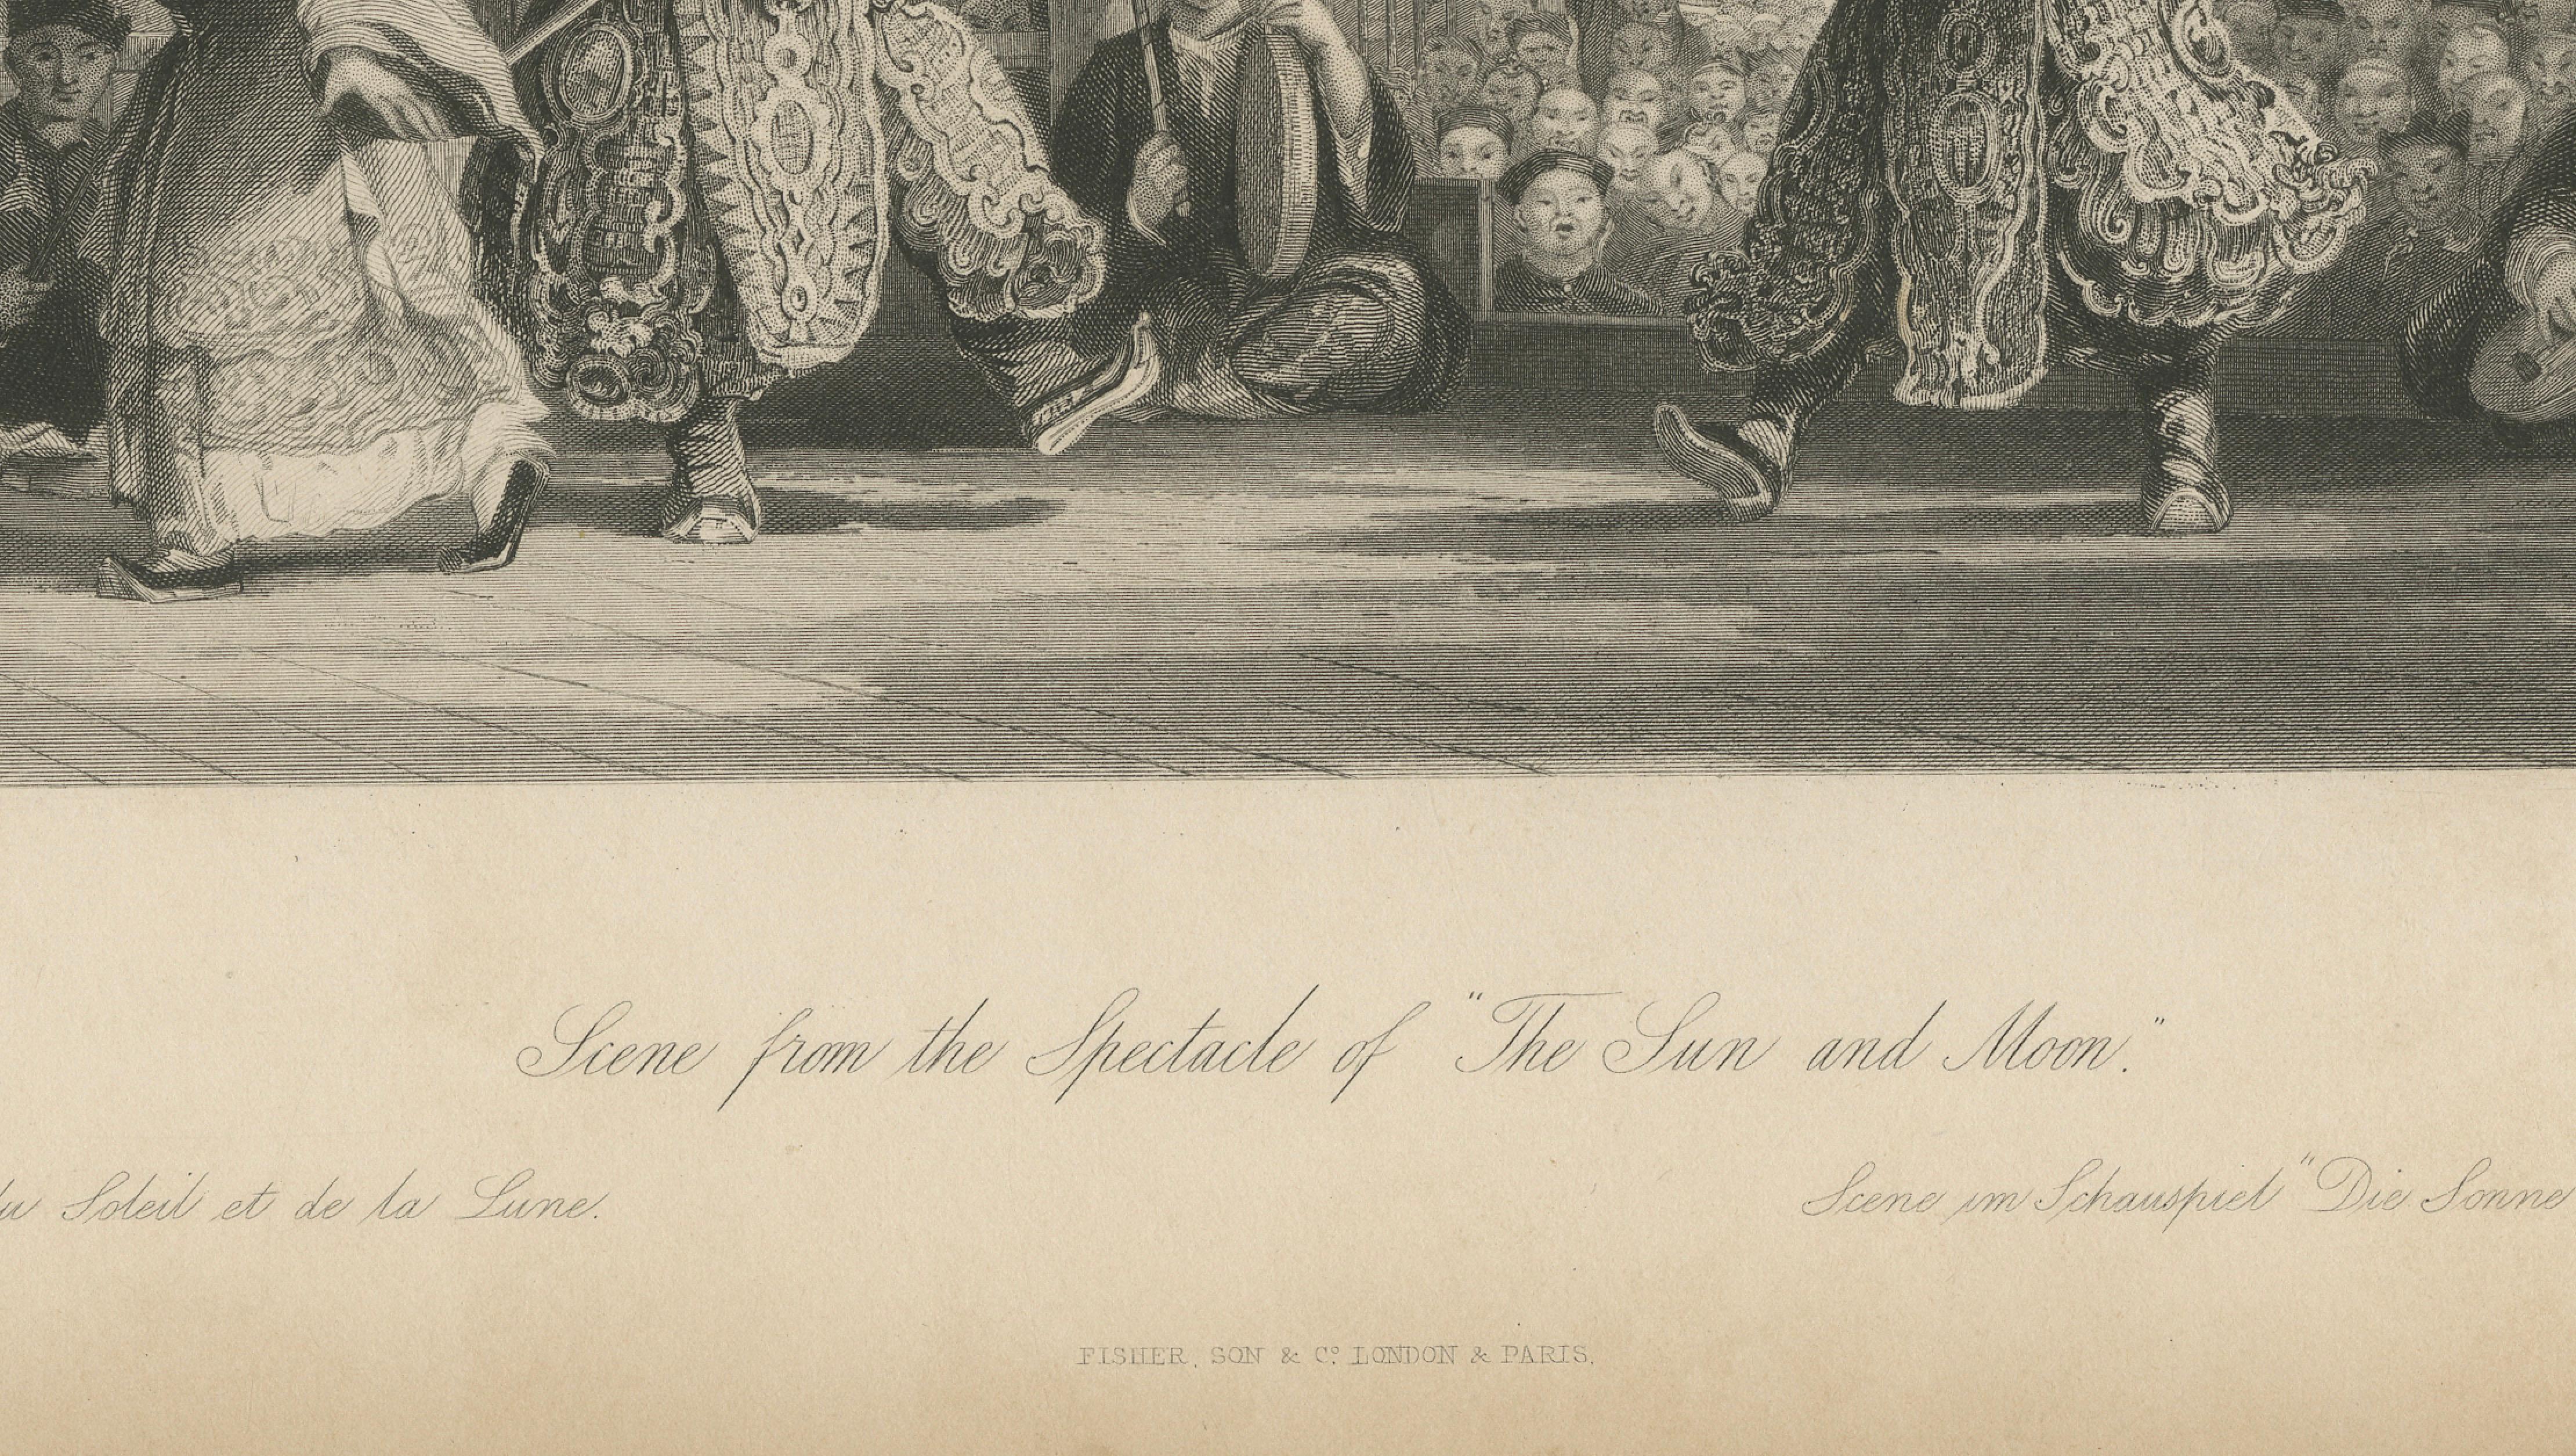 Scene from the Spectacle of "The Sun and Moon."
du Soleil et de la Lune.
Scene im Schauspiel "Die Sonne
FISHER, SON & Co. LONDON & PARIS.